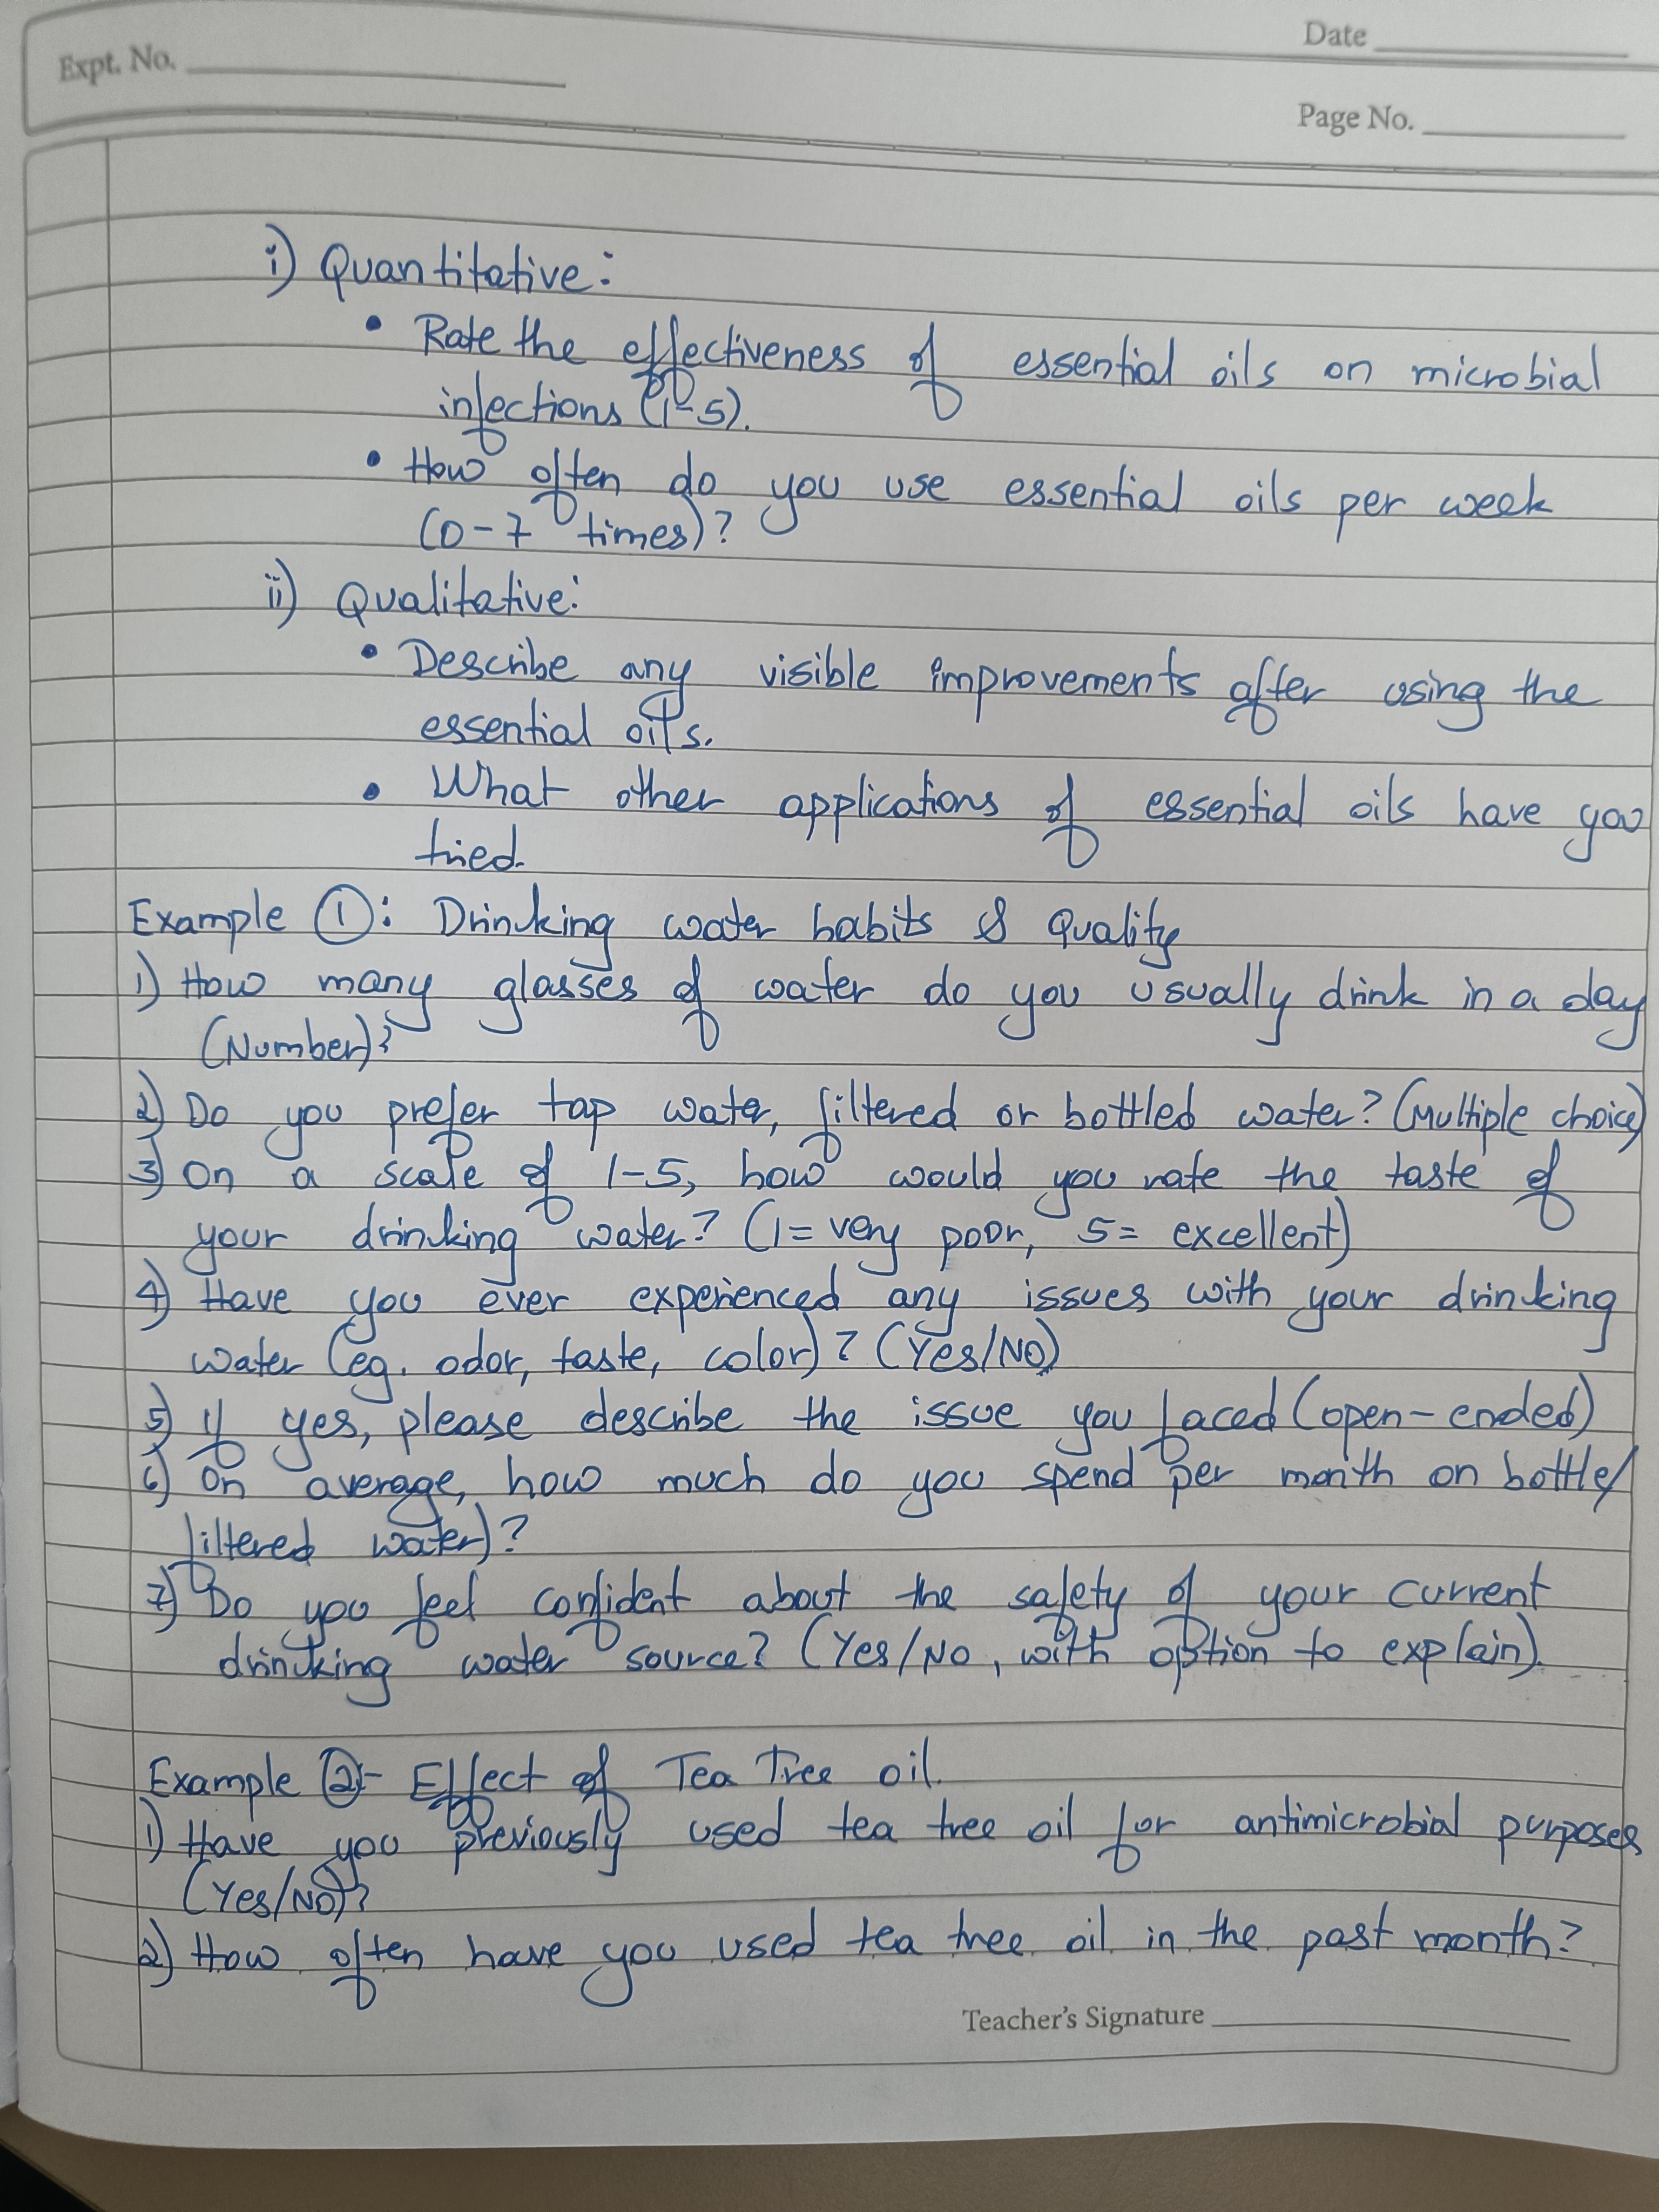 Expt. No.
Date
Page No.
i) Quantitative:
• Rate the effectiveness of essential oils on microbial
infections (1-5).
• How often do you use essential oils per week
(0-7 times)?
ii) Qualitative:
• Describe any visible improvements after using the
essential oils.
• What other applications of essential oils have you
tried.
Example ①: Drinking water habits & Quality
1) How many glasses of water do you usually drink in a day
(Number)?
2) Do you prefer tap water, filtered or bottled water? (Multiple choice)
3) On a scale of 1-5, how would you rate the taste of
your drinking water? (1= very poor, 5= excellent)
4) Have you ever experienced any issues with your drinking
water (eg. odor, taste, color)? (Yes/NO)
5) If yes, please describe the issue you faced (open-ended)
6) On average, how much do you spend per month on bottle/
filtered water)?
7) Do you feel confident about the safety of your current
drincking water source? (Yes/No, with option to explain).
Example ②- Effect of Tea Tree oil.
1) Have you previously used tea tree oil for antimicrobial purposes
(Yes/NO)?
2) How often have you used tea tree oil in the past month?
Teacher's Signature